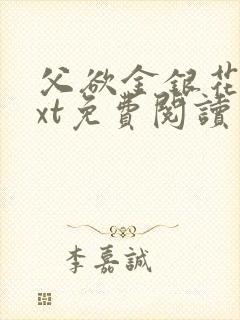 父欲金银花
xt免費閱讀
李嘉誠